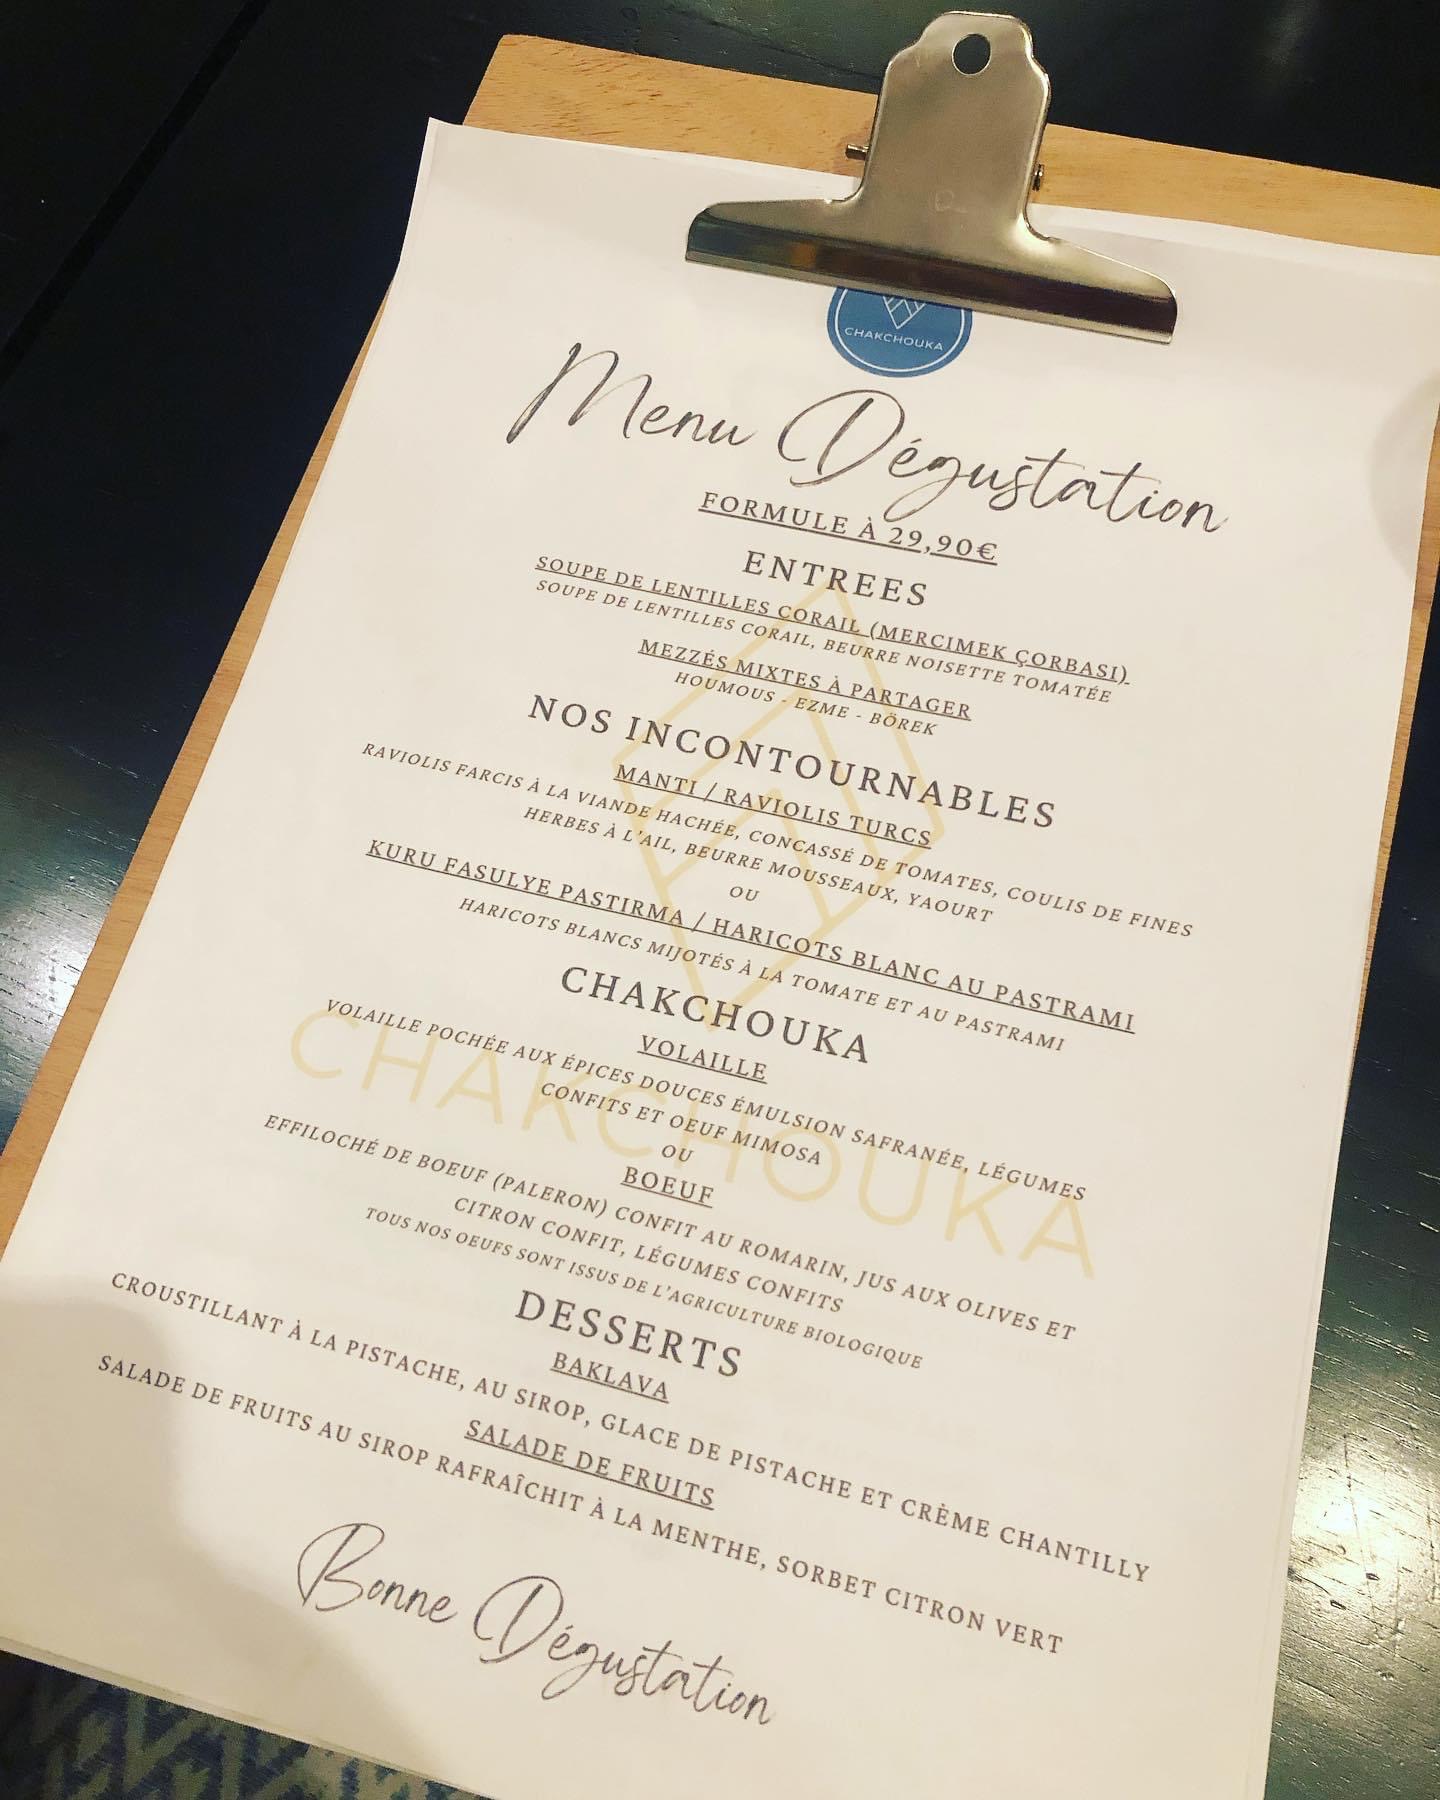 CHAKCHOUKA
Menu Dégustation
FORMULE À 29,90€
ENTREES
SOUPE DE LENTILLES CORAIL (MERCIMEK ÇORBASI)
SOUPE DE LENTILLES CORAIL, BEURRE NOISETTE TOMATÉE
MEZZÉS MIXTES À PARTAGER
HOUMOUS - EZME - BÖREK
NOS INCONTOURNABLES
MANTI / RAVIOLIS TURCS
RAVIOLIS FARCIS À LA VIANDE HACHÉE, CONCASSÉ DE TOMATES, COULIS DE FINES
HERBES À L'AIL, BEURRE MOUSSEAUX, YAOURT
OU
KURU FASULYE PASTIRMA / HARICOTS BLANC AU PASTRAMI
HARICOTS BLANCS MIJOTÉS À LA TOMATE ET AU PASTRAMI
CHAKCHOUKA
VOLAILLE
VOLAILLE POCHÉE AUX ÉPICES DOUCES ÉMULSION SAFRANÉE, LÉGUMES
CONFITS ET OEUF MIMOSA
OU
BOEUF
EFFILOCHÉ DE BOEUF (PALERON) CONFIT AU ROMARIN, JUS AUX OLIVES ET
CITRON CONFIT, LÉGUMES CONFITS
TOUS NOS OEUFS SONT ISSUS DE L'AGRICULTURE BIOLOGIQUE
CHAKCHOUKA
DESSERTS
BAKLAVA
CROUSTILLANT À LA PISTACHE, AU SIROP, GLACE DE PISTACHE ET CRÈME CHANTILLY
SALADE DE FRUITS
SALADE DE FRUITS AU SIROP RAFRAÎCHIT À LA MENTHE, SORBET CITRON VERT
Bonne Dégustation